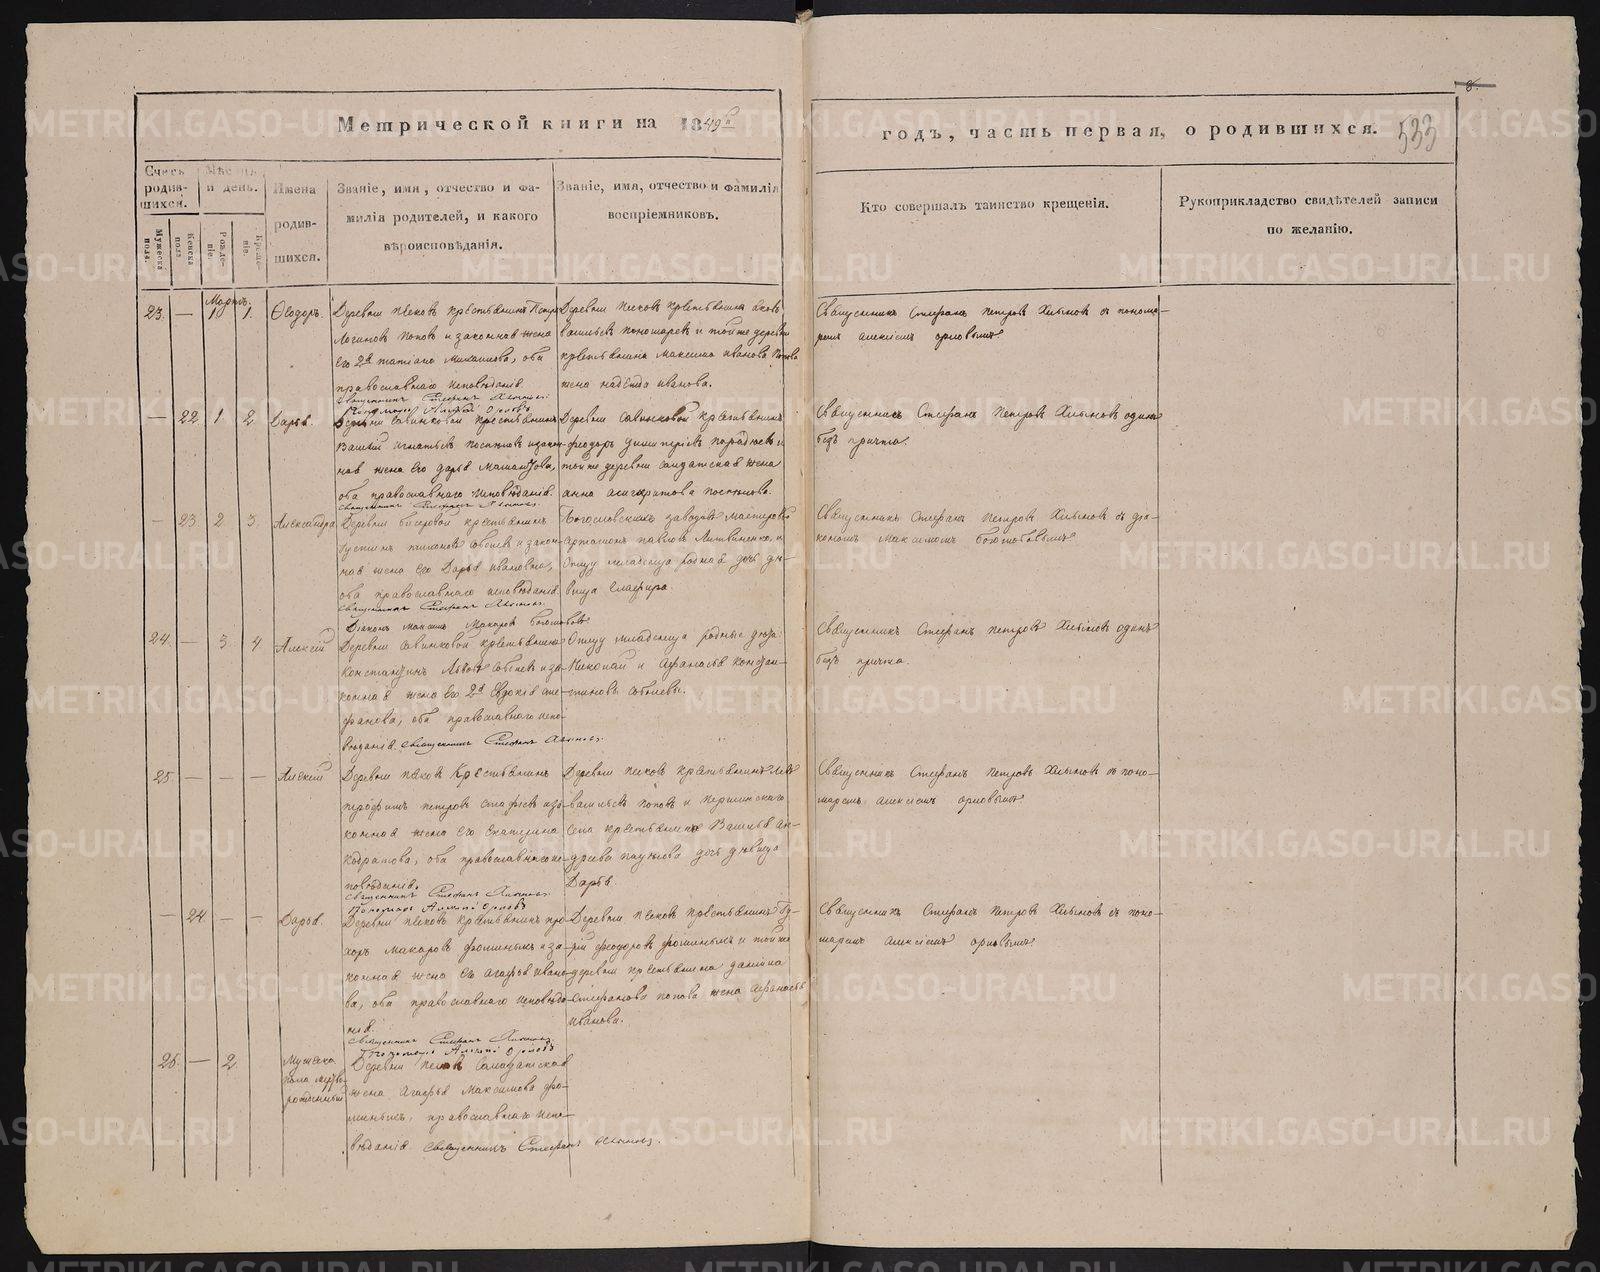 8.
Метрической книги на 1849й
годъ, часть первая, о родившихся. 533
Счетъ родившихся.
Мѣсяцъ и день.
Мужеска пола.
Женска пола
Рожденіе.
Крещеніе.
Имена родившихся.
Званіе, имя, отчество и фамилія родителей, и какого вѣроисповѣданія.
Званіе, имя, отчество и фамилія воспріемниковъ.
Кто совершалъ таинство крещенія.
Рукоприкладство свидѣтелей записи по желанію.
Мартъ.
23. — 1 1. Ѳеодоръ.
Деревни Песковъ крестьянинъ Петръ
Логиновъ Поповъ и законная жена
его 2я Татіана Михайлова, оба
православнаго исповѣданія
Священникъ Стефанъ Хлыновъ
Пономарь Алексѣй Орловъ
Деревни Песковъ крестьянинъ Яковъ
Васильевъ Пономаревъ и тойже деревни
крестьянина Максима Иванова Попова
жена Надежда Иванова.
Священникъ Стефанъ Петровъ Хлыновъ съ понома-
ремъ Алексіемъ Орловымъ
— 22 1. 2 Дарья.
Деревни Савинковой крестьянинъ
Василій Игнатьевъ и закон-
ная жена его Дарья
оба православнаго исповѣданія
Священникъ Стефанъ Хлыновъ
Деревни Савинковой крестьянинъ
Феодоръ Димитріевъ и
тойже деревни солдатская жена
Анна
Священникъ Стефанъ Петровъ Хлыновъ одинъ
безъ причта.
— 23 2 3. Александра
Деревни крестьянинъ
и закон-
ная жена его Дарья Иванова,
оба православнаго исповѣданія
Священникъ Стефанъ Хлыновъ
Діаконъ Максимъ Макаровъ
Богословскихъ заводовъ мастеровой
Артамонъ Павловъ Литвиненко, и
отцу младенца родная дочь дѣ-
вица Глафира.
Священникъ Стефанъ Петровъ Хлыновъ съ діа-
кономъ Максимомъ
24. — 3. 4 Алексій
Деревни Савинковой крестьянинъ
Константинъ и за-
конная жена его 2я Евдокія Сте-
фанова, оба православнаго испо-
вѣданія Священникъ Стефанъ Хлыновъ
Отцу младенца родные дѣти
Николай и Афанасья Констан-
тиновы
Священникъ Стефанъ Петровъ Хлыновъ одинъ
безъ причта.
25 — — — Алексій
Деревни Песковъ крестьянинъ
Петровъ и за-
конная жена его Екатерина
Кодратова, оба православнаго ис-
повѣданія.
Священникъ Стефанъ Хлыновъ
Пономарь Алексѣй Орловъ
Деревни Песковъ крестьянинъ Левъ
Васильевъ Поповъ и Першинскаго
села крестьянина Василья Ан-
дреева дочь дѣвица
Дарья.
Священникъ Стефанъ Петровъ Хлыновъ съ поно-
маремъ Алексіемъ Орловымъ
— 24 — — Дарья
Деревни Песковъ крестьянинъ Про-
хоръ Макаровъ Фоминыхъ и за-
конная жена его Агафья Ивано-
ва, оба православнаго исповѣда-
нія.
Священникъ Стефанъ Хлыновъ
Пономарь Алексѣй Орловъ
Деревни Песковъ крестьянинъ
Феодоровъ Фоминыхъ и тойже
деревни крестьянина Данила
Стефанова Попова жена Афанасья
Иванова.
Священникъ Стефанъ Петровъ Хлыновъ съ поно-
маремъ Алексіемъ Орловымъ
26. — 2. Мужеска
пола мертво-
рожденный
Деревни Песковъ солдатская
жена Агафья Максимова Фо-
миныхъ, православнаго испо-
вѣданія Священникъ Стефанъ Хлыновъ.
METRIKI.GASO-URAL.RU